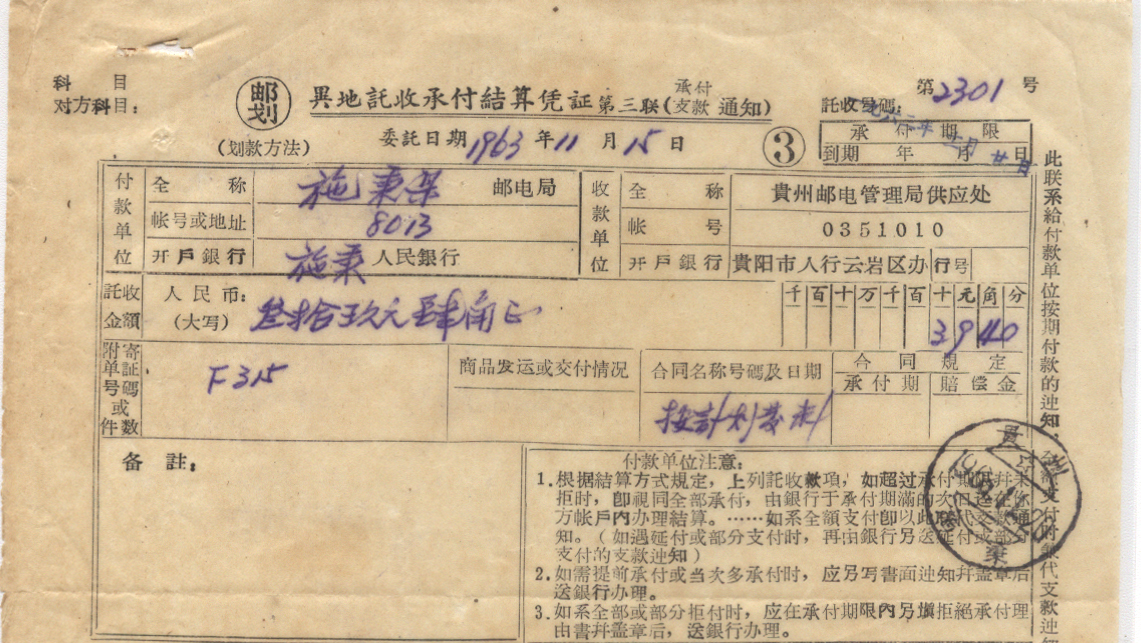 科 目
对方科目：
邮划
(划款方法)
異地託收承付結算凭証 第三联(承付支款 通知)
第2301号
託收号碼：
委託日期1963年11月15日
③
承付期限
到期 年 月 廿日
付款单位
全 称 施秉 邮电局
帐号或地址 8013
开戶銀行 施秉 人民銀行
收款单位
全 称 貴州邮电管理局供应处
帐 号 0351010
开戶銀行 貴阳市人行云岩区办 行号
託收金額 人民币：(大写) 叁拾玖元肆角正
千百十万千百十元角分
3940
附寄单証号碼或件数
F315
商品发运或交付情况
合同名称号碼及日期
按計划发料
合同規定
承付期 賠偿金
备 註：
付款单位注意：
1.根据結算方式規定，上列託收款項，如超过承付期
拒时，卽視同全部承付，由銀行于承付期滿的次日
方帐戶內办理結算。……如系全額支付卽以此 代支款通
知。（如遇延付或部分支付时，再由銀行另送延付或部分
支付的支款通知）
2.如需提前承付或当次多承付时，应另写書面通知幷盖章后
送銀行办理。
3.如系全部或部分拒付时，应在承付期限內另塡拒絕承付理
由書幷盖章后，送銀行办理。
此联系給付款单位按期付款的通知，
支付时兼代支款通
貴州
施秉